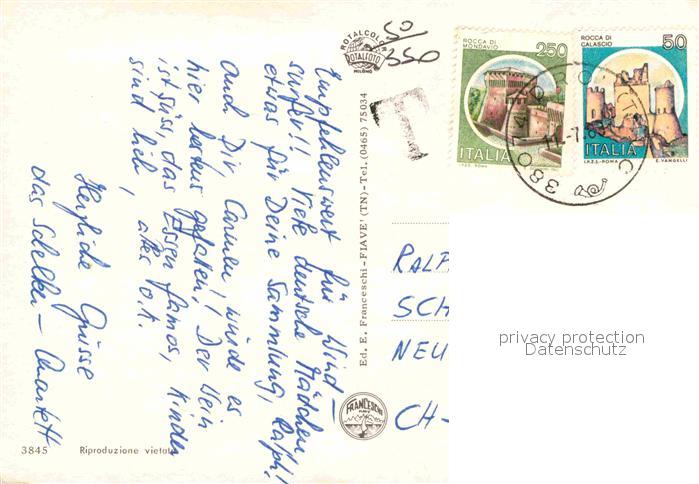 Empfehlenswert für Wind-
surfer!! Viele deutsche Mädchen
etwas für Deine Sammlung, Ralph!
Auch Dir Carmen, würde es
hier bestens gefallen! Der Wein
ist süss, das Essen famos, Kinder
sind lieb, alles o.k.
Herzliche Grüsse
das Quartett
3845
Riproduzione vietata
Ed. E. Franceschi-FIAVE, (TN)-Tel. (0465) 75034
ROTALCOLOR
ROTALFOTO
MILANO
FRANCESCHI
50/350
T
ROCCA DI
MONDAVIO
250
ITALIA
I.P.Z.S.-ROMA
ROCCA DI
CALASCIO
50
ITALIA
I.P.Z.S.-ROMA E. VANGELLI
380
RALP
SCH
NEU
CH-
privacy protection
Datenschutz